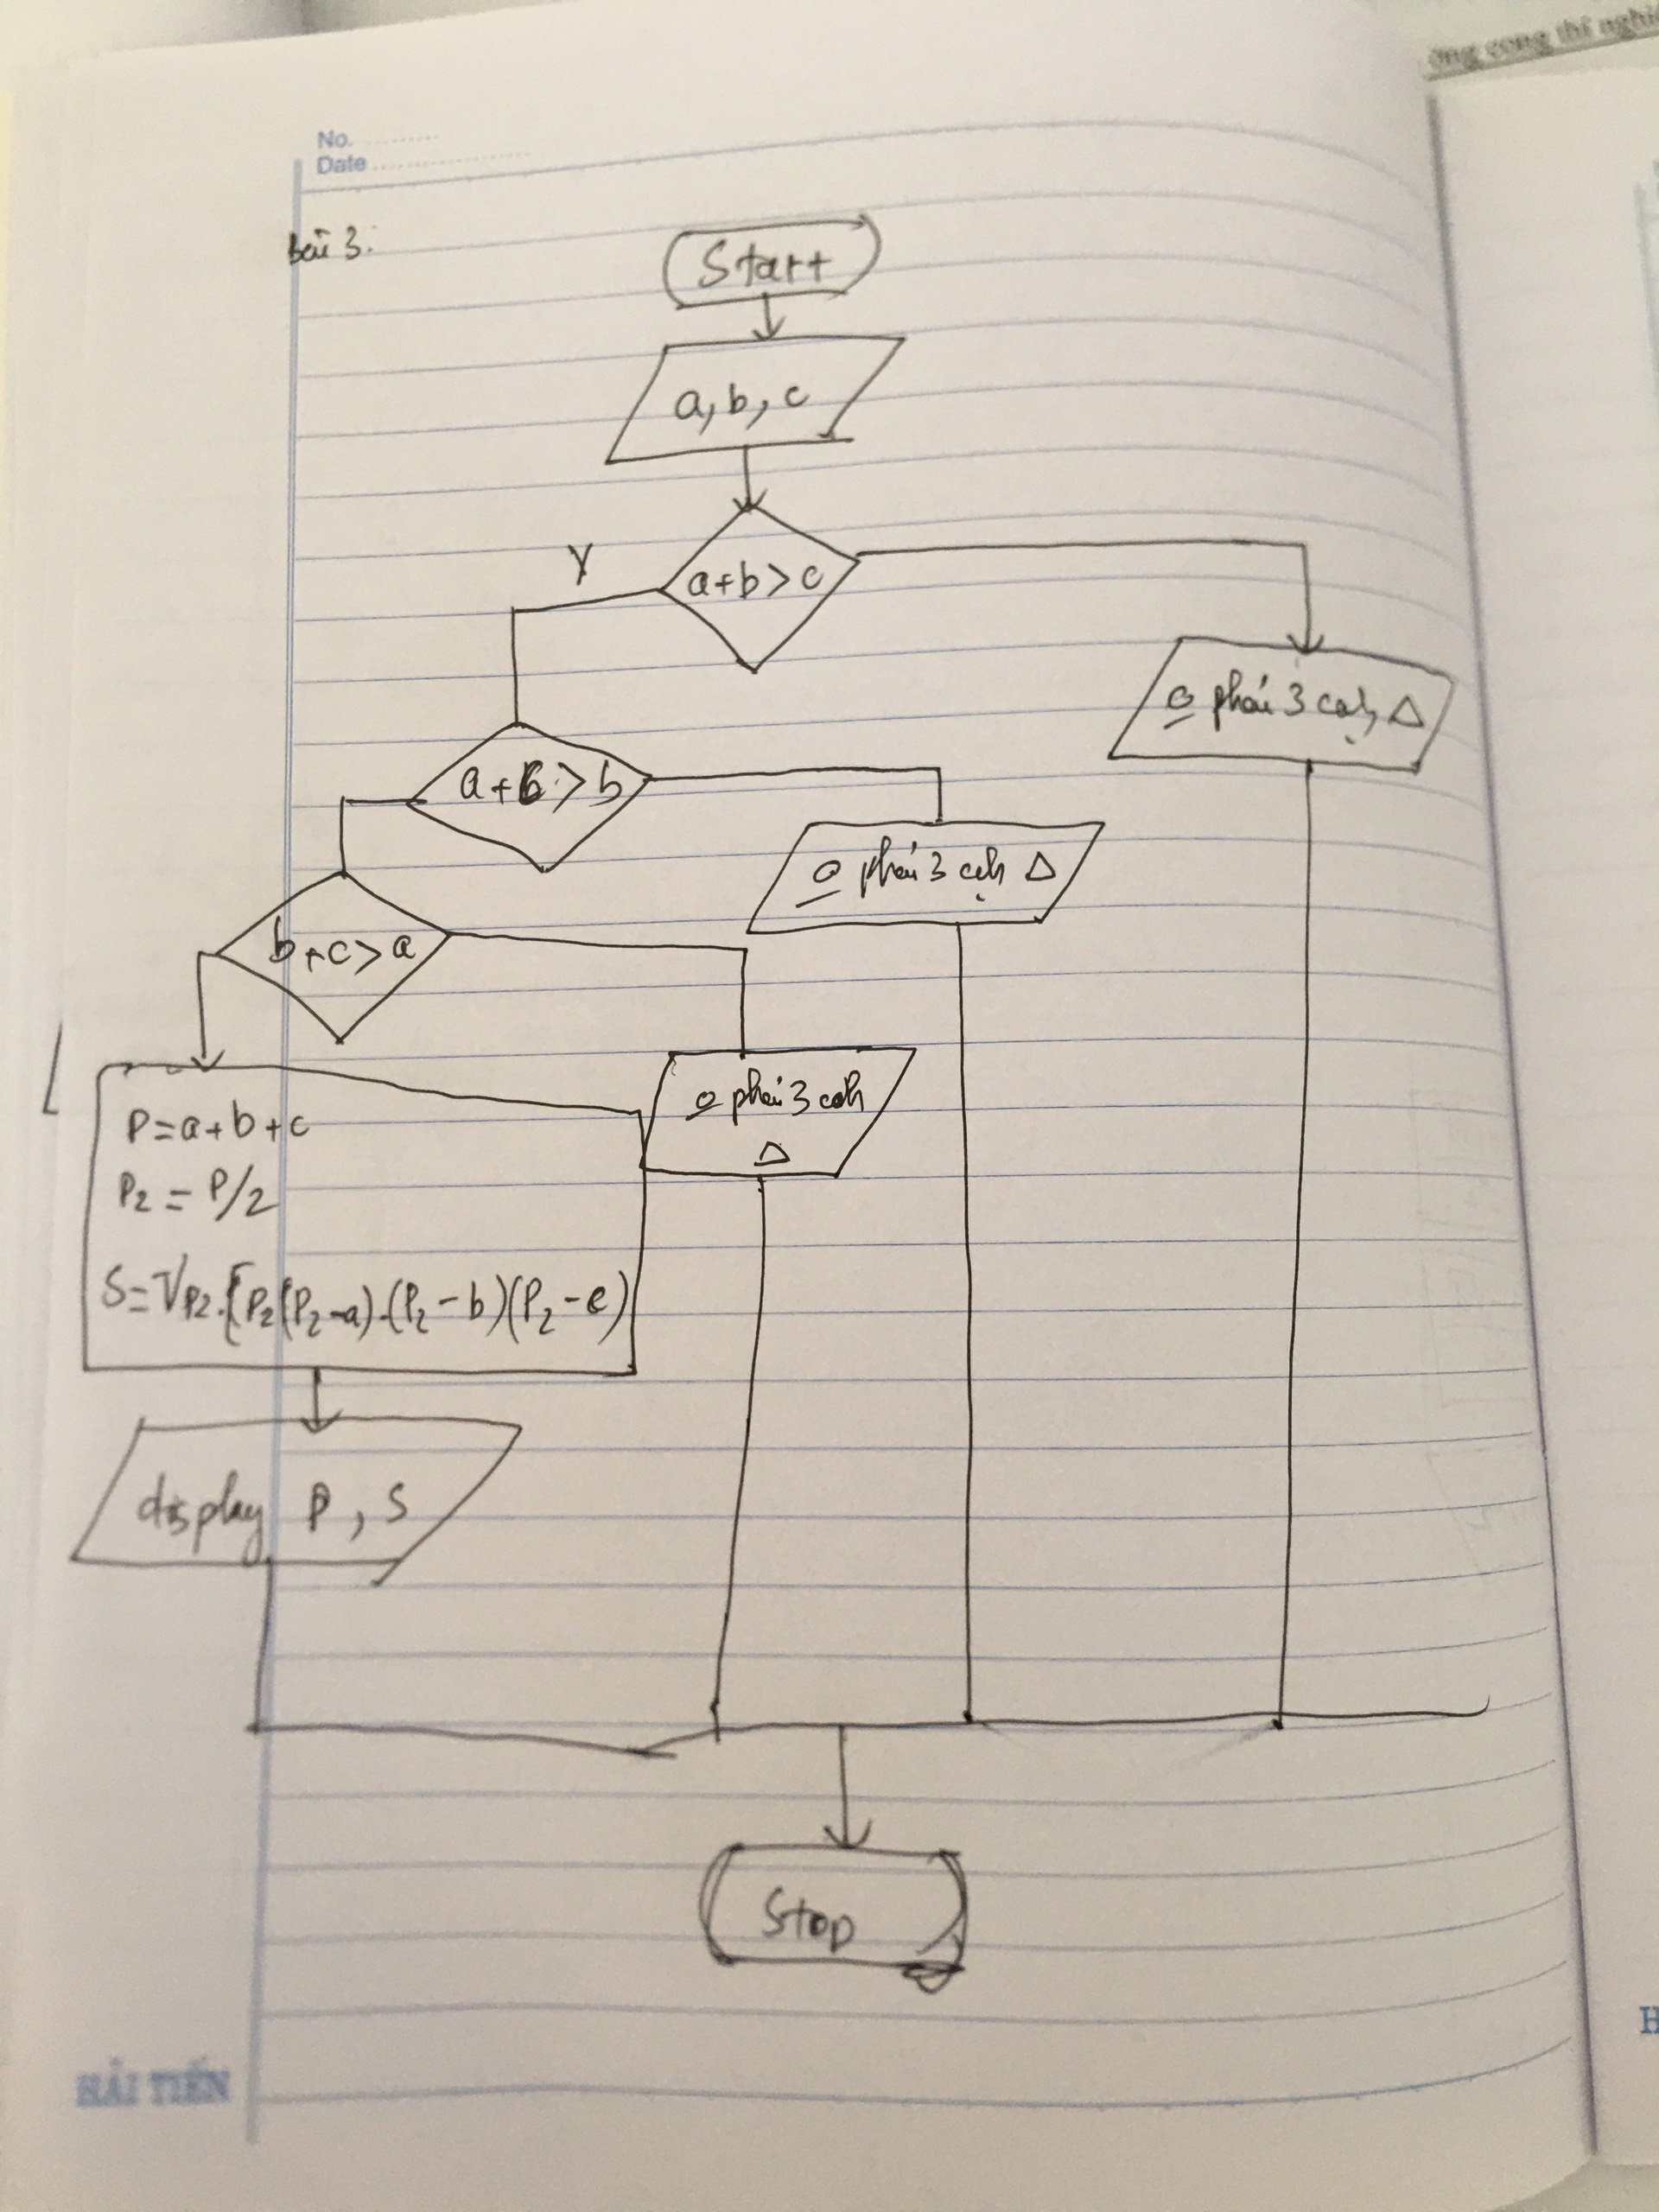 ờng cong thí nghi
No.
Date
bài 3:
Start
a, b, c
Y
a+b>c
o phải 3 cạh Δ
a+c>b
o phải 3 cạh Δ
b+c>a
o phải 3 cạh
Δ
P=a+b+c
P2 = P/2
S=√P2.[P2(P2-a).(P2-b)(P2-c)
display P, S
Stop
HẢI TIẾN
H